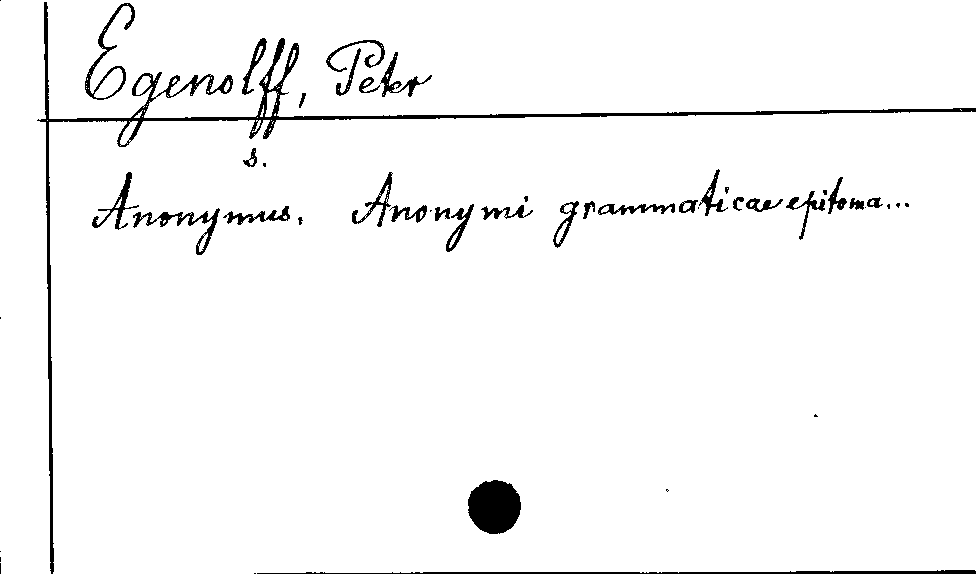 Egenolff, Peter
s.
Anonymus. Anonymi grammaticae epitoma...